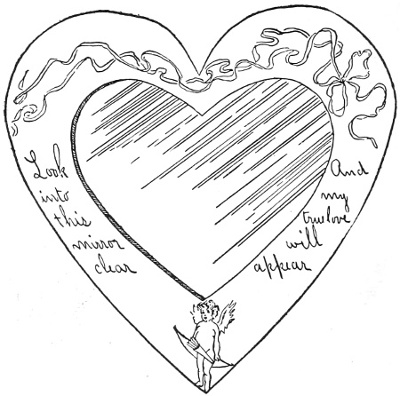 Look
into
this
mirror
clear
And
my
truelove
will
appear